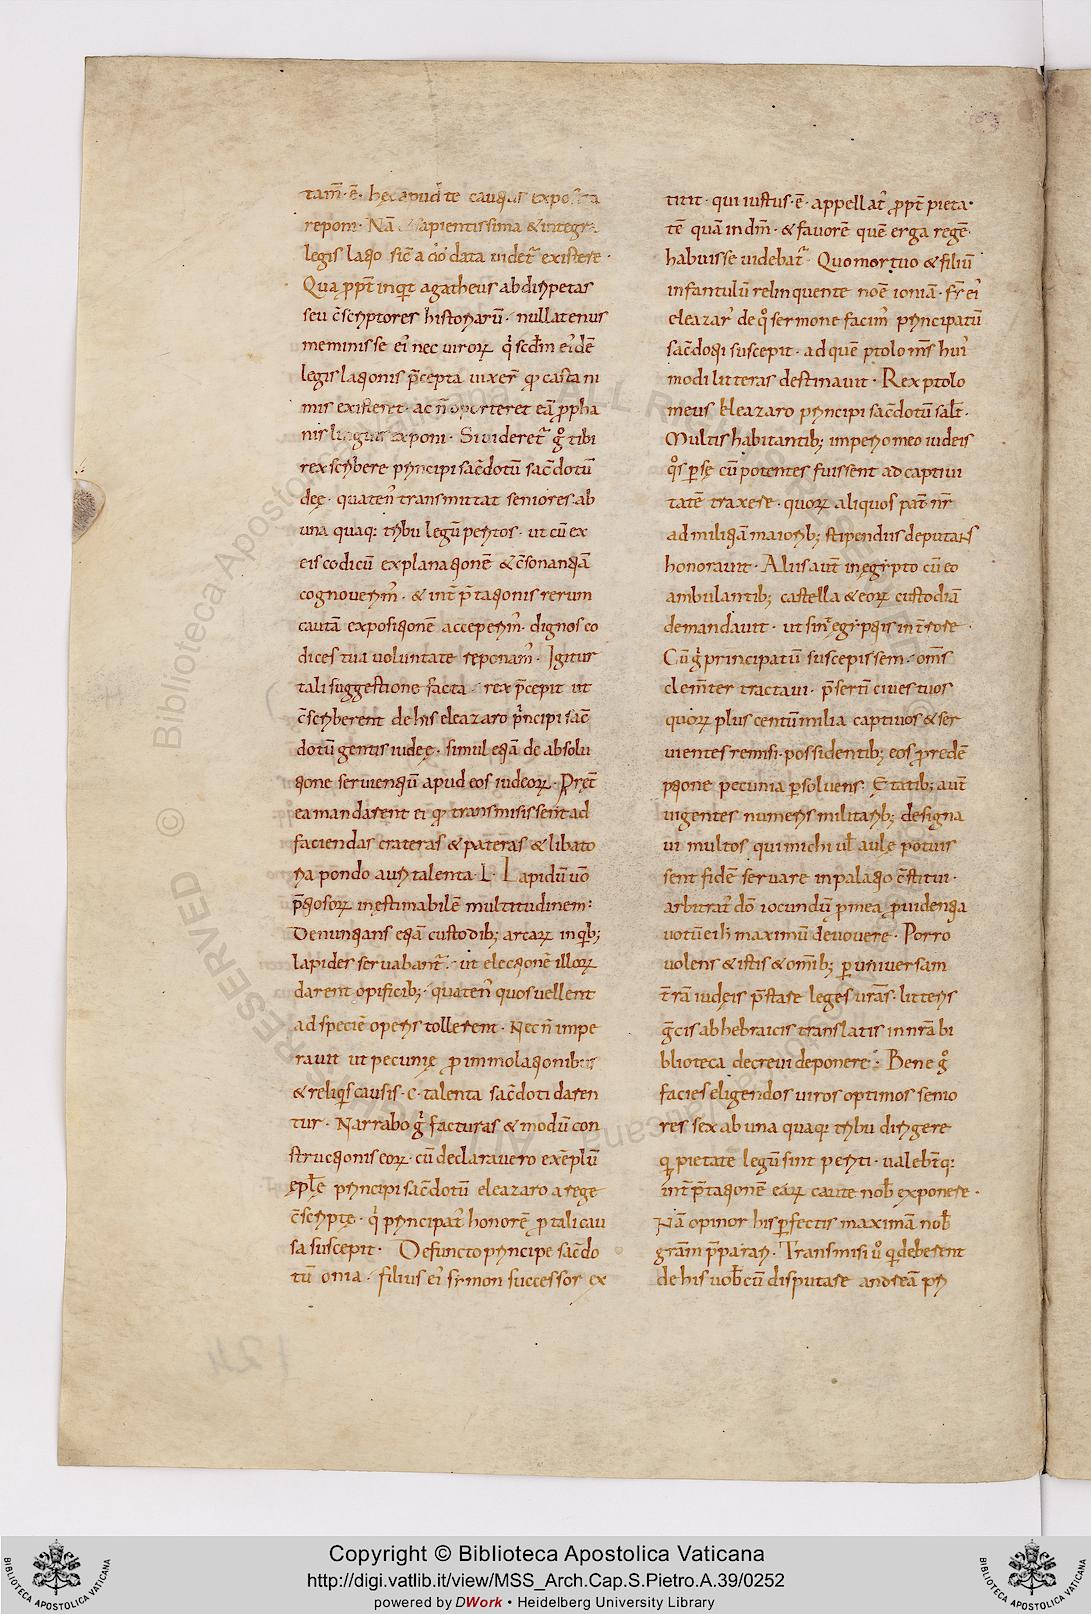 tam̅·e̅· hęc apud te causas exposita
reponi· Na̅ sapientissima & integra
legis latio sic̅ a d̅o data uidet᷑ existere·
Quą ppt̅ inqt agatheus abdiripetas
seu c̅scriptores historiaru̅· nullatenus
meminisse ei᷒ nec uiroꝝ q̇ scd̅m ei᷒de̅
legislationis p̅cepta uixer̅ qđ casta ni
mis existeret· ac n̅ oporteret ea̅ ꝓpha
nis linguis exponi· Si uideret᷑ gͦ tibi
rex scribere principi sac̅dotu̅ sac̅dotu̅
dęę· quaten᷒ transmittat seniores ab
una quaq: tribu legu̅ peritos· ut cu̅ ex
eis codicu̅ explanatione̅ & c̅sonantia̅
cognouerim᷒· & int̅p̅tationis rerum
cauta̅ expositione̅ acceperim᷒· dignos co
dices tua uoluntate reponam᷒· Igitur
tali suggestione facta· rex p̅cepit ut
c̅scriberent de his eleazaro pͥncipi sac̅
dotu̅ gentis iudeę· simul etia̅ de absolu
tione seruientiu̅ apud eos iudeoꝝ· Pręt̅
ea mandarent ei qđ transmisissent ad
faciendas crateras & pateras & libato
ria pondo auri talenta· L· Lapidu̅ uo̅
p̅tiosoꝝ inęstimabile̅ multitudinem:
Denuntians etia̅ custodib; arcaꝝ in qb;
lapides seruabant᷑· ut electione̅ illoꝝ
darent opificib;· quaten᷒ quos uellent
ad specie̅ operis tollerent· Necn̅ impe
rauit ut pecunię ꝓ immolationibus
& reliqs causis· c· talenta sac̅doti daren
tur· Narrabo gͥ facturas & modu̅ con
structionis eoꝝ· cu̅ declarauero exe̅plu̅
epl̅ę principi sac̅dotu̅ eleazaro a rege
c̅scriptę· q̇ principat᷒ honore̅ ꝓ tali cau
sa suscepit· Defuncto principe sac̅do
tu̅ onia· filius ei᷒ symon successor ex
titit· qui iustus·e̅· appellat᷒ ꝓpt̅ pieta·
te̅ qua̅ in dm̅· & fauore̅ que̅ erga rege̅·
habuisse uidebat᷑· Quo mortuo & filiu̅
infantulu̅ relinquente no̅e ionia̅· fr̅ ei᷒
eleazar᷒ de qͦ sermone facim᷒ principatu̅
sac̅dotii suscepit· ad que̅ ptolom̅s hui᷒
modi litteras destinauit· Rex ptolo
meus Eleazaro principi sac̅dotu̅ salt̅·
Multis habitantib; imperio meo iudeis
qͦs ꝑsę cu̅ potentes fuissent ad captiui
tate̅ traxere· quoꝝ aliquos pat̅ nr̅
ad militia̅ maiorib; stipendiis deputans
honorauit· Aliis aut̅ in ęgypto cu̅ eo
ambulantib; castella & eoꝝ custodia̅
demandauit· ut sint̅ egyptiis int̅rore·
Cu̅ gͥ principatu̅ suscepissem· om̅s
clem̅ter tractaui· p̅sertı̅ ciues tuos
quoꝝ plus centu̅ milia captiuos & ser
uientes remisi· possidentib; eos ꝓ rede̅
ptione pecunia ꝑsoluens· Ętatib; aut̅
uigentes numeris militarib; designa
ui multos qui michi ul̅ aulę potuis
sent fide̅ seruare in palatio c̅stitui·
arbitrat᷒ do̅ iocundu̅ ꝓ mea ꝓuidentia
uotu̅ ei h̅ maximu̅ deuouere· Porro
uolens & istis & om̅ib; ꝑ uniuersam
t̅ra̅ iudęis p̅stare leges ur̅as· litteris
g̅cis ab hebraicis translatis in nr̅a bi
blioteca decreui deponere· Bene gͦ
facies eligendos uiros optimos senio
res sex ab una quaq: tribu dirigere
q ꝓ pietate legu̅ sint periti· ualebt̅q:
int̅p̅tatione̅ eaꝝ caute nob̅ exponere·
Na̅ opinor his ꝑfectis maxima̅ nob̅
gr̅am p̅parari· Transmisi uͦ q deberent
de his uob̅cu̅ disputare andrea̅ pri
124
Copyright © Biblioteca Apostolica Vaticana
http://digi.vatlib.it/view/MSS_Arch.Cap.S.Pietro.A.39/0252
powered by DWork • Heidelberg University Library